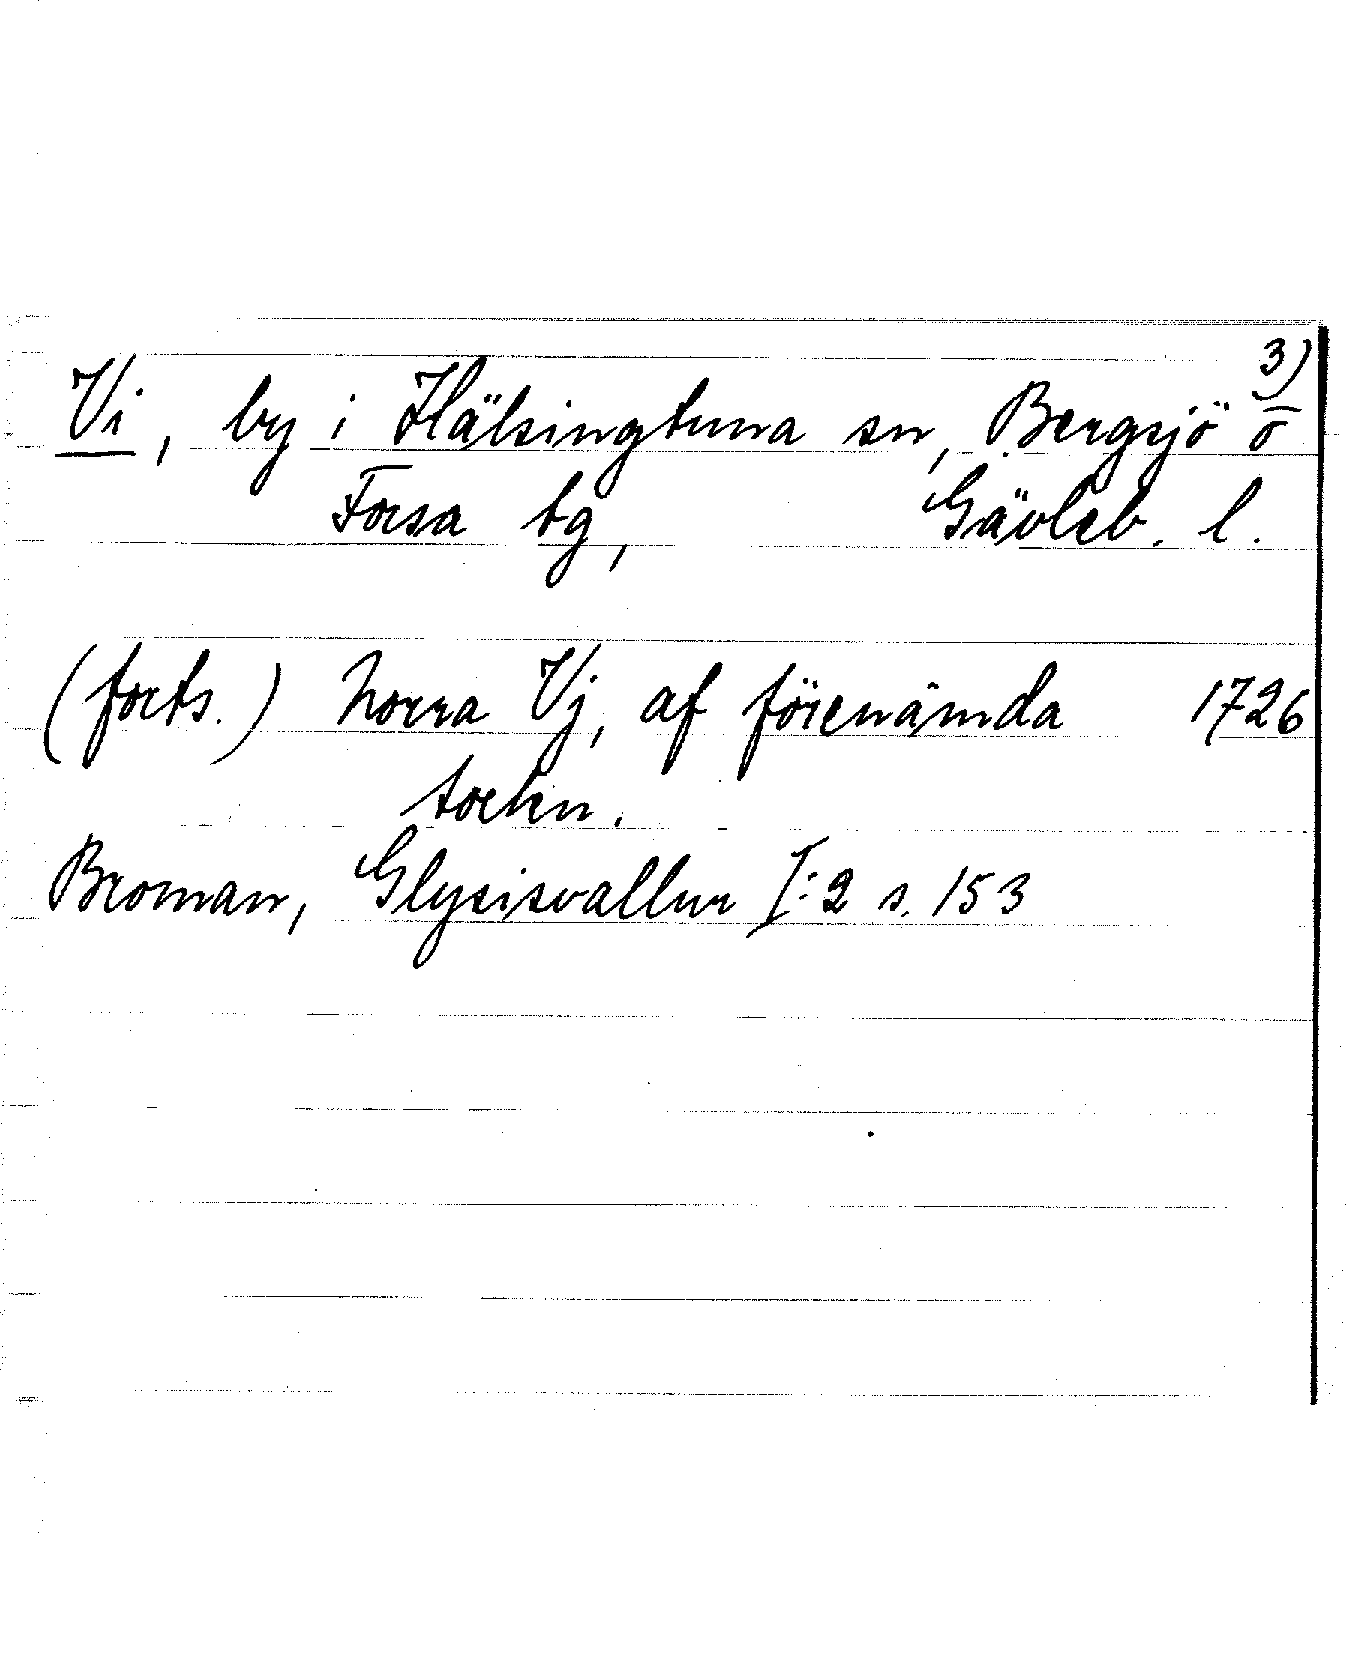 3)
Vi, by i Hälsingtuna sn, Bergsjö o̅
Forsa tg, Gävleb. l.
(forts.) Norra Vj, af förenämda 1726
torkn.
Broman, Glysisvallur I:2 s. 153